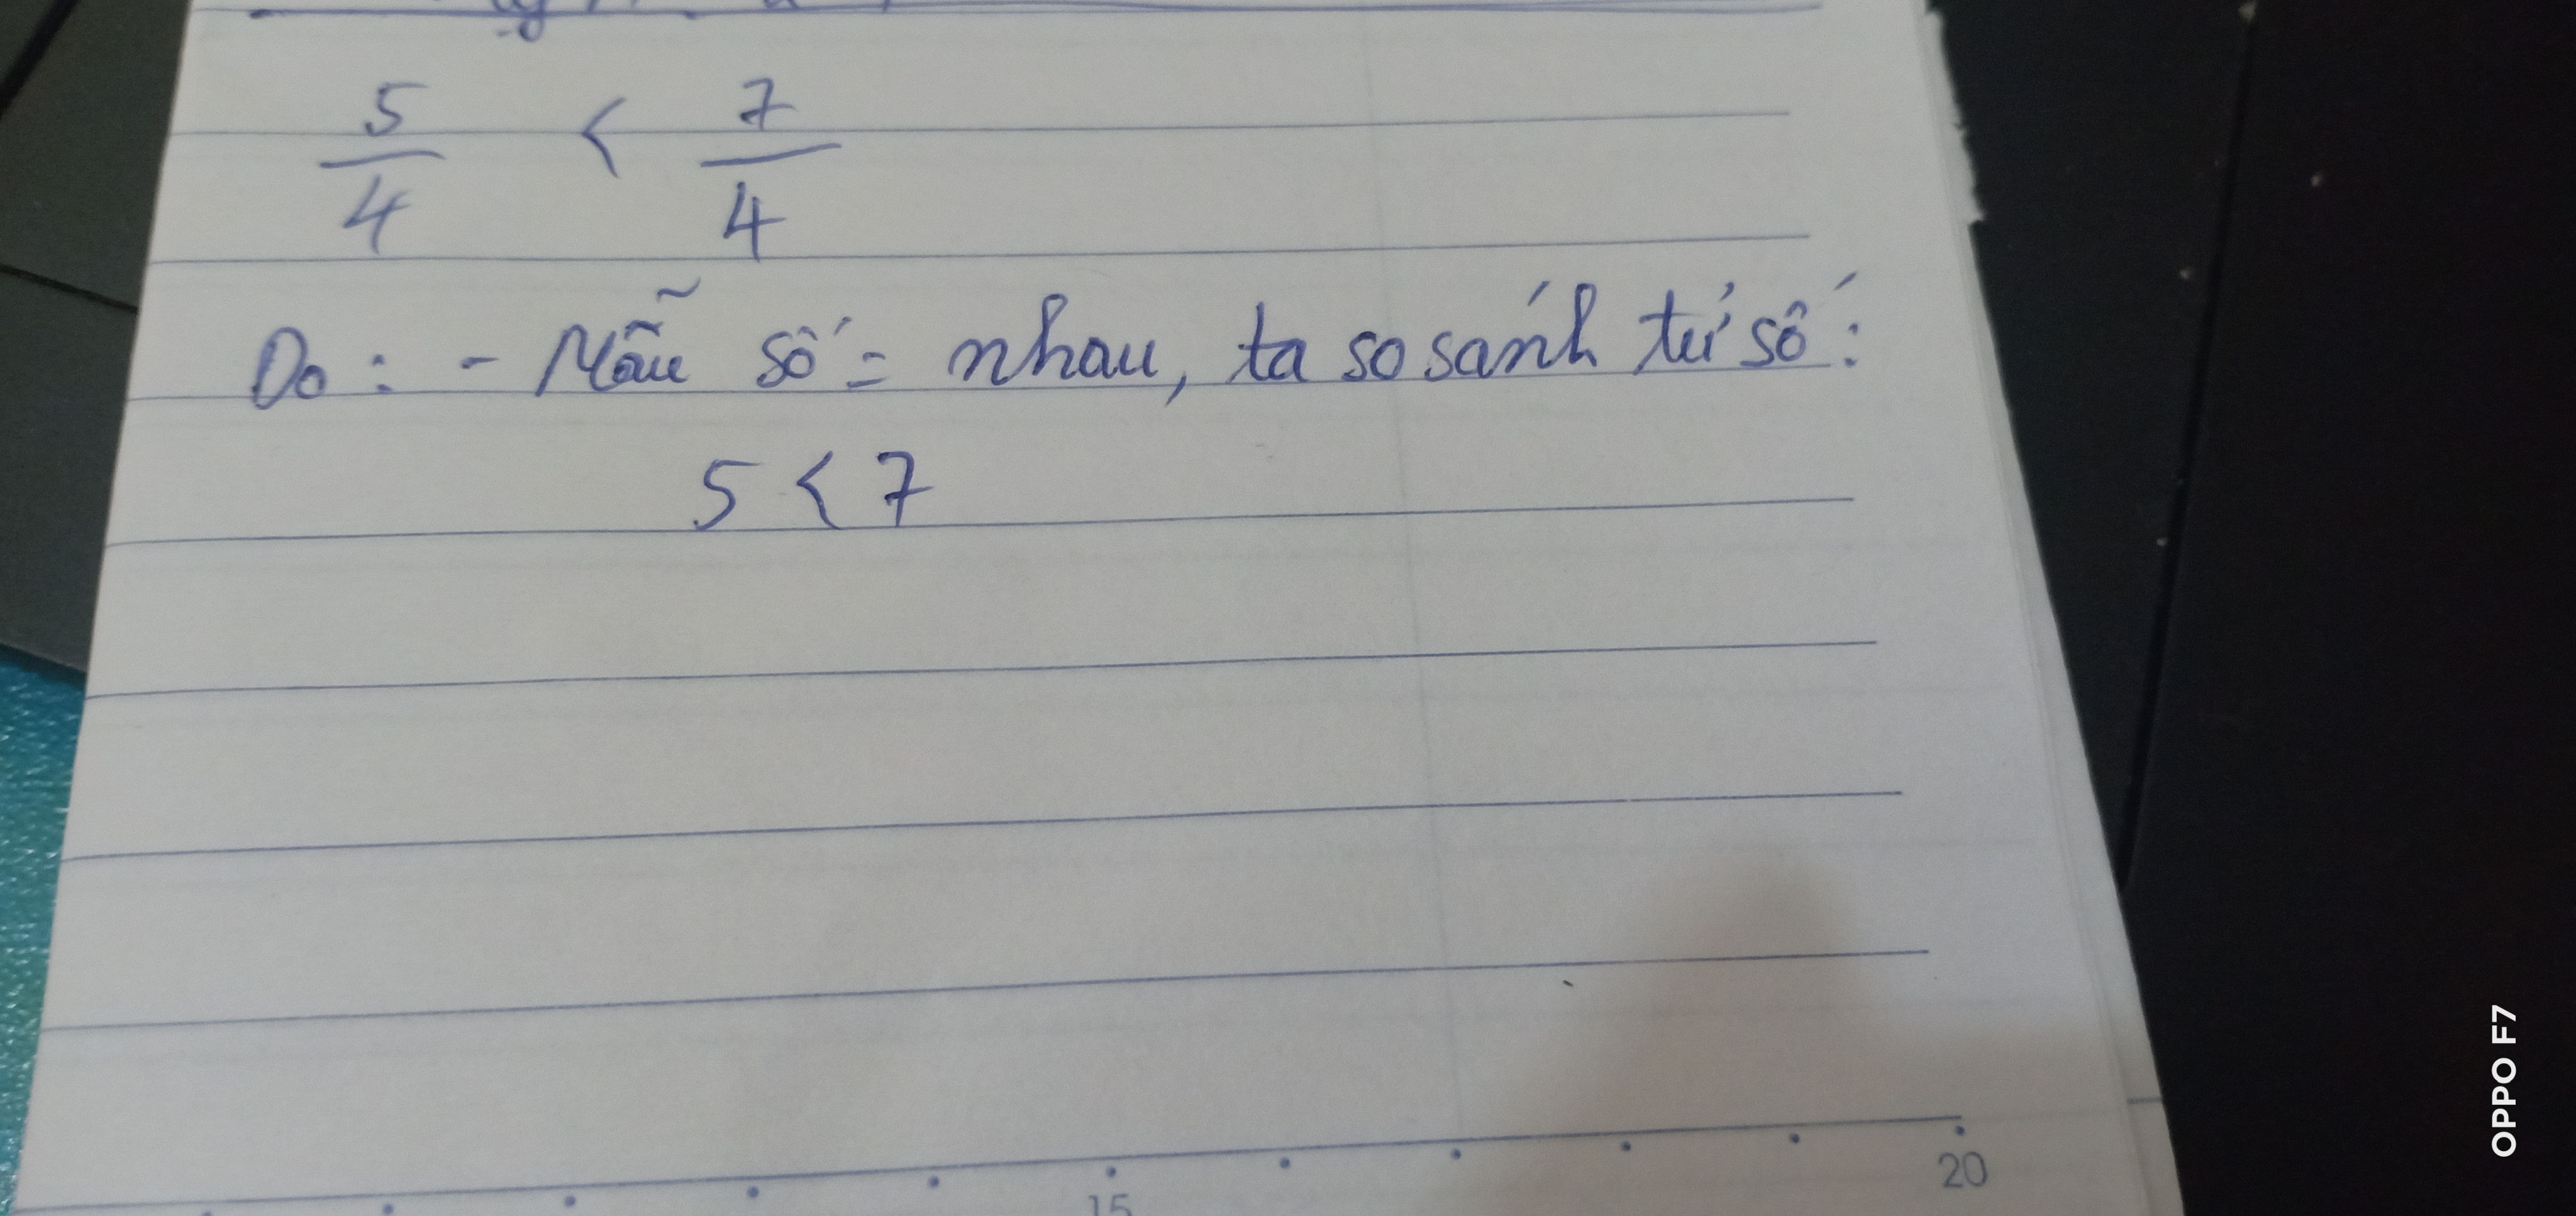 5/4 < 7/4
Do : - Mẫu số = nhau, ta so sánh tử số :
5 < 7
15
20
OPPO F7